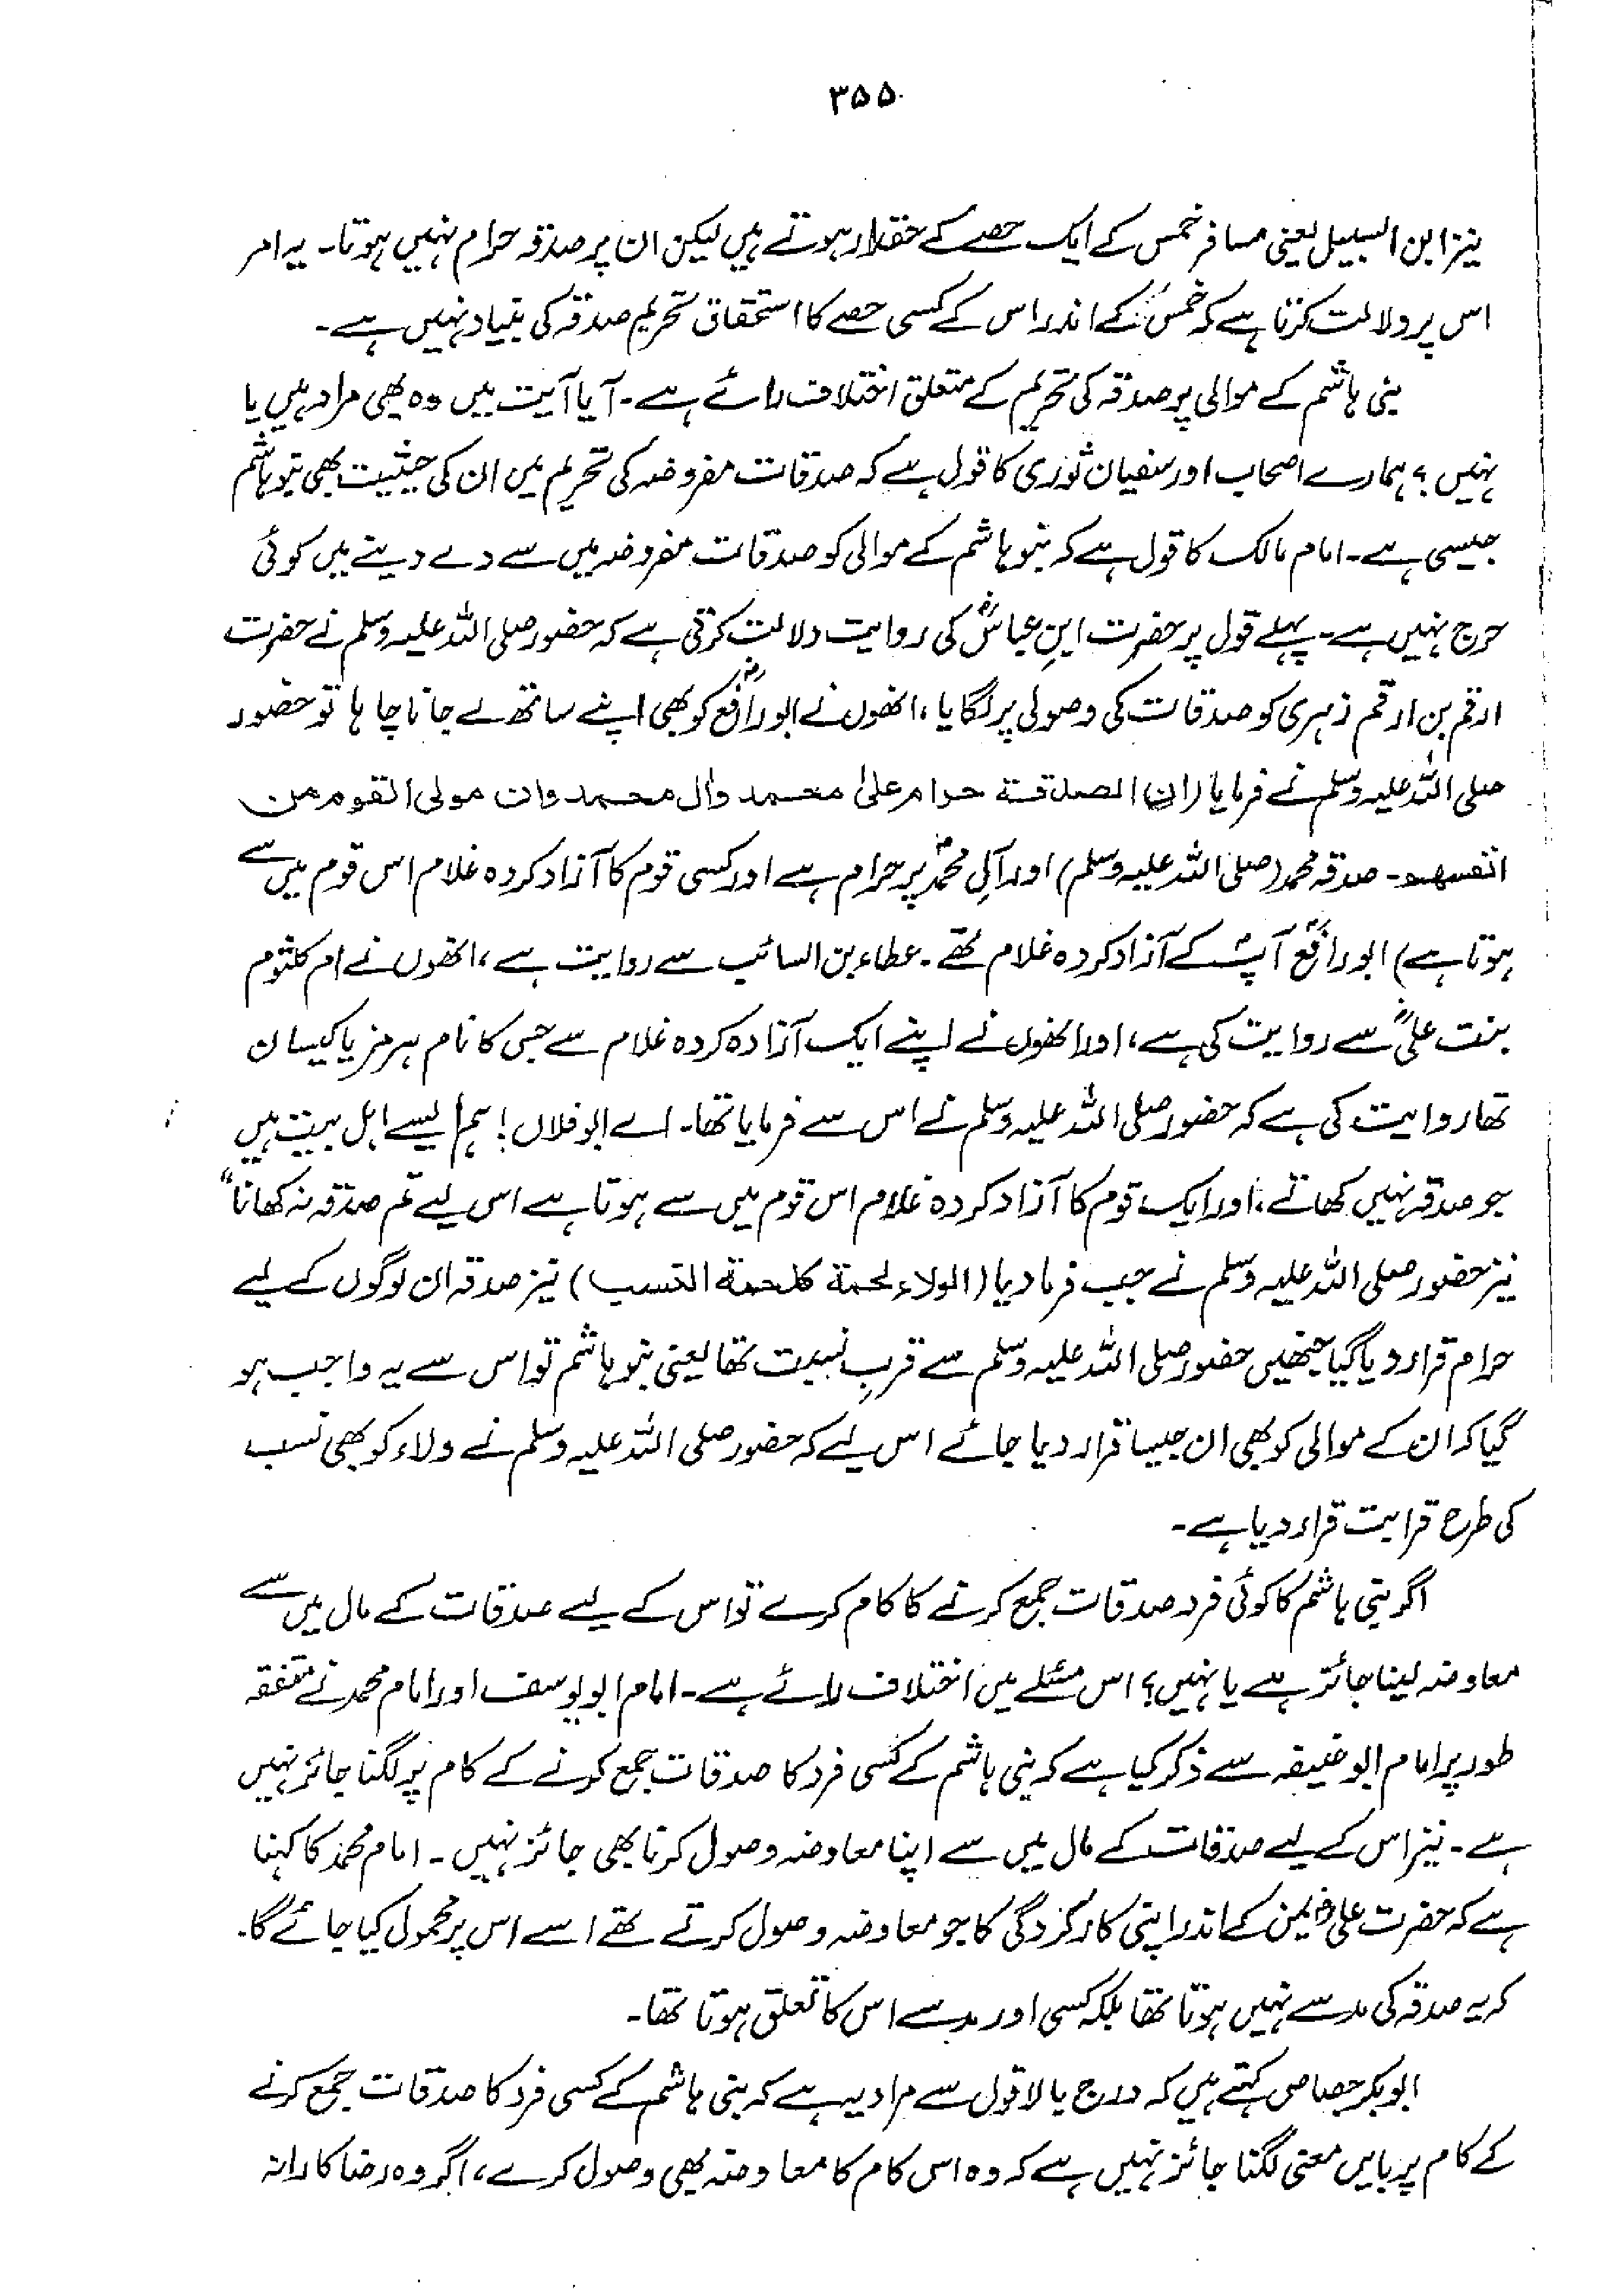 ۳۵۵
نیز ابن السبیل یعنی مسافر خمس کے ایک حصے کے حقدار ہوتے ہیں لیکن ان پر صدقہ حرام نہیں ہوتا۔ یہ امر
اس پر دلالت کرتا ہے کہ خمس کے اندر اس کے کسی حصے کا استحقاق تحریم صدقہ کی بنیاد نہیں ہے۔
بنی ہاشم کے موالی پر صدقہ کی تحریم کے متعلق اختلاف رائے ہے۔ آیا آیت میں وہ بھی مراد ہیں یا
نہیں؟ ہمارے اصحاب اور سفیان ثوری کا قول ہے کہ صدقات مفروضہ کی تحریم میں ان کی حیثیت بھی بنو ہاشم
جیسی ہے۔ امام مالک کا قول ہے کہ بنو ہاشم کے موالی کو صدقات مفروضہ میں سے دے دینے میں کوئی
حرج نہیں ہے۔ پہلے قول پر حضرت ابنِ عباسؓ کی روایت دلالت کرتی ہے کہ حضور صلی اللہ علیہ وسلم نے حضرت
ارقم بن ارقم زہری کو صدقات کی وصولی پر لگایا، انھوں نے ابورافعؓ کو بھی اپنے ساتھ لے جانا چاہا تو حضور
صلی اللہ علیہ وسلم نے فرمایا (ان الصدقة حرام علیٰ محمد واٰل محمد وان مولی القوم من
انفسهم۔ صدقہ محمد (صلی اللہ علیہ وسلم) اور آلِ محمدؐ پر حرام ہے اور کسی قوم کا آزاد کردہ غلام اس قوم میں سے
ہوتا ہے) ابورافعؓ آپؐ کے آزاد کردہ غلام تھے۔ عطاء بن السائب سے روایت ہے، انھوں نے ام کلثوم
بنت علیؓ سے روایت کی ہے، اور انھوں نے اپنے ایک آزادہ کردہ غلام سے جس کا نام ہرمز یا کیسان
تھا روایت کی ہے کہ حضور صلی اللہ علیہ وسلم نے اس سے فرمایا تھا۔ اے ابو فلاں! ہم ایسے اہل بیت ہیں
جو صدقہ نہیں کھاتے، اور ایک قوم کا آزاد کردہ غلام اس قوم میں سے ہوتا ہے اس لیے تم صدقہ نہ کھانا“
نیز حضور صلی اللہ علیہ وسلم نے جب فرما دیا (الولاء لحمة کلحمة النسب) نیز صدقہ ان لوگوں کے لیے
حرام قرار دیا گیا جنھیں حضور صلی اللہ علیہ وسلم سے قربِ نسبت تھا یعنی بنو ہاشم تو اس سے یہ واجب ہو
گیا کہ ان کے موالی کو بھی ان جیسا قرار دیا جائے اس لیے کہ حضور صلی اللہ علیہ وسلم نے ولاء کو بھی نسب
کی طرح قرابت قرار دیا ہے۔
اگر بنی ہاشم کا کوئی فرد صدقات جمع کرنے کا کام کرے تو اس کے لیے صدقات کے مال میں سے
معاوضہ لینا جائز ہے یا نہیں؟ اس مسئلے میں اختلاف رائے ہے۔ امام ابو یوسف اور امام محمد نے متفقہ
طور پر امام ابو حنیفہ سے ذکر کیا ہے کہ بنی ہاشم کے کسی فرد کا صدقات جمع کرنے کے کام پر لگنا جائز نہیں
ہے۔ نیز اس کے لیے صدقات کے مال میں سے اپنا معاوضہ وصول کرنا بھی جائز نہیں۔ امام محمد کا کہنا
ہے کہ حضرت علیؓ یمن کے اندر اپنی کارگزدگی کا جو معاوضہ وصول کرتے تھے اسے اس پر محمول کیا جائے گا۔
کہ یہ صدقہ کی مد سے نہیں ہوتا تھا بلکہ کسی اور مد سے اس کا تعلق ہوتا تھا۔
ابوبکر جصاص کہتے ہیں کہ درج بالا قول سے مراد یہ ہے کہ بنی ہاشم کے کسی فرد کا صدقات جمع کرنے
کے کام پر بایں معنی لگنا جائز نہیں ہے کہ وہ اس کام کا معاوضہ بھی وصول کرے، اگر وہ رضاکارانہ